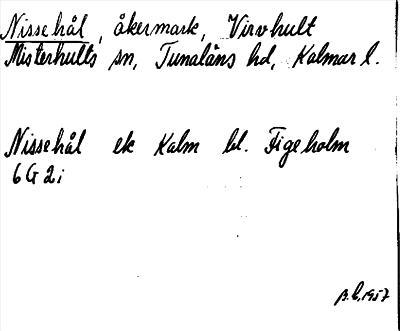 Nissehål, åkermark, Virvhult
Misterhults sn, Tunaläns hd, Kalmar l.
Nissehål ek Kalm bl. Figeholm
6G2i
1957